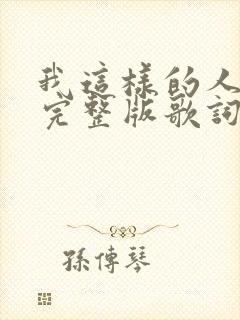 我這樣的人
完整版歌詞
孫傳琴